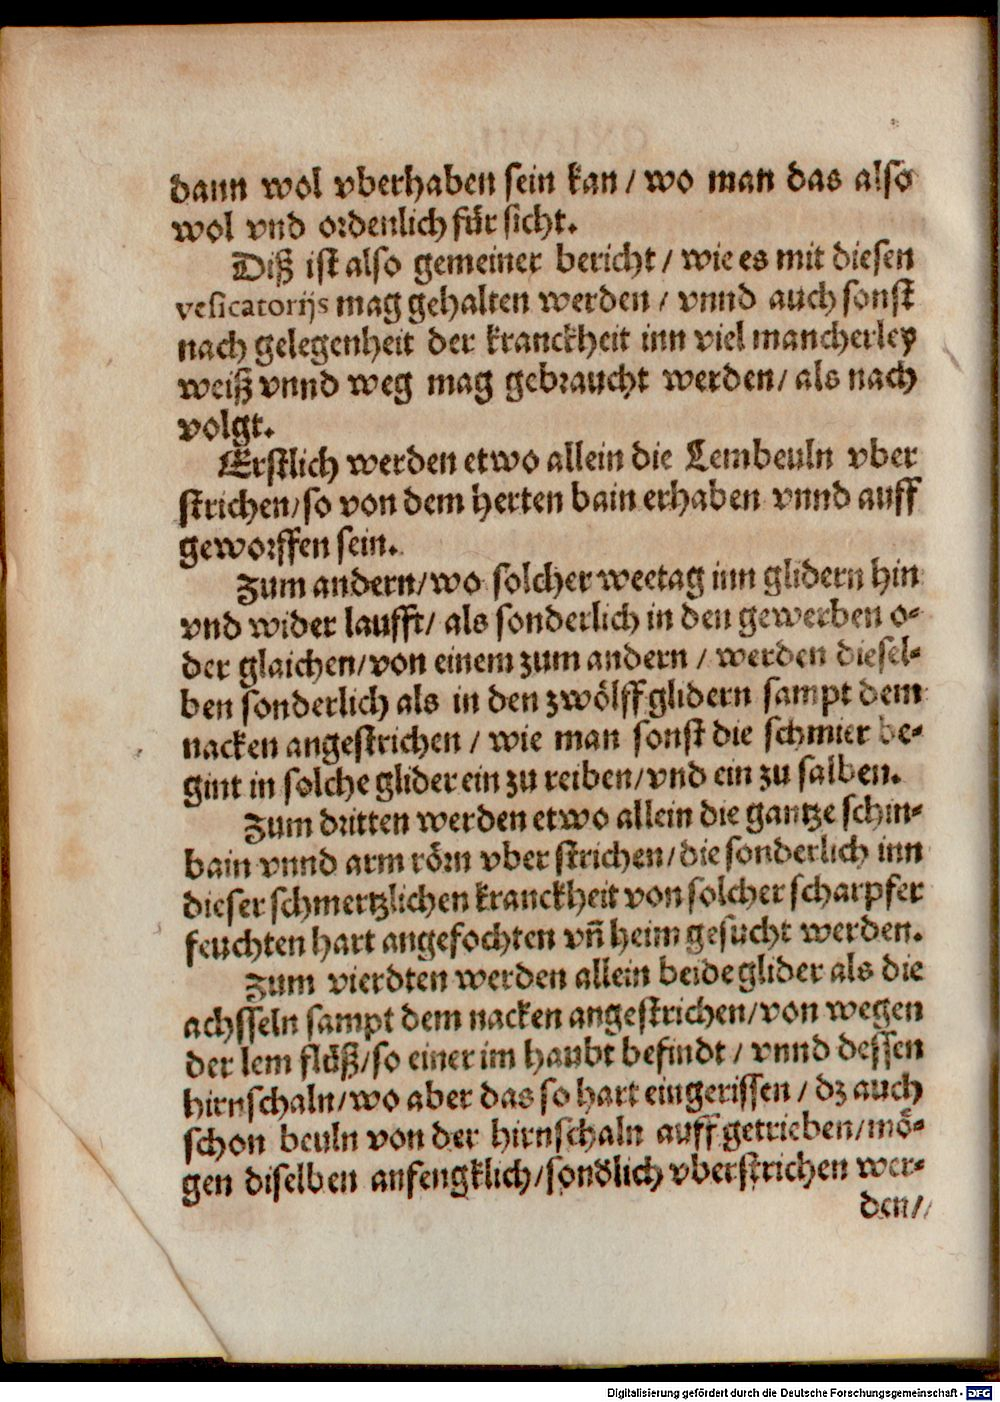 dann wol vberhaben sein kan / wo man das also
wol vnd ordenlich für sicht.
Diß ist also gemeiner bericht / wie es mit diesen
vesicatorijs mag gehalten werden / vnnd auch sonst
nach gelegenheit der kranckheit inn viel mancherley
weiß vnnd weg mag gebraucht werden / als nach
volgt.
Erstlich werden etwo allein die Lembeuln vber
strichen / so von dem herten bain erhaben vnnd auff
geworffen sein.
Zum andern / wo solcher weetag inn glidern hin
vnd wider laufft / als sonderlich in den gewerben o-
der glaichen / von einem zum andern / werden diesel-
ben sonderlich als in den zwölff glidern sampt dem
nacken angestrichen / wie man sonst die schmier be-
gint in solche glider ein zu reiben / vnd ein zu salben.
Zum dritten werden etwo allein die gantze schin-
bain vnnd arm rörn vber strichen / die sonderlich inn
dieser schmertzlichen kranckheit von solcher scharpfer
feuchten hart angefochten vñ heim gesucht werden.
Zum vierdten werden allein beide glider als die
achsseln sampt dem nacken angestrichen / von wegen
der lem flüß / so einer im haubt befindt / vnnd dessen
hirnschaln / wo aber das so hart eingerissen / dz auch
schon beuln von der hirnschaln auff getrieben / mö-
gen diselben anfengklich / sondlich vberstrichen wer-
den /
Digitalisierung gefördert durch die Deutsche Forschungsgemeinschaft - DFG